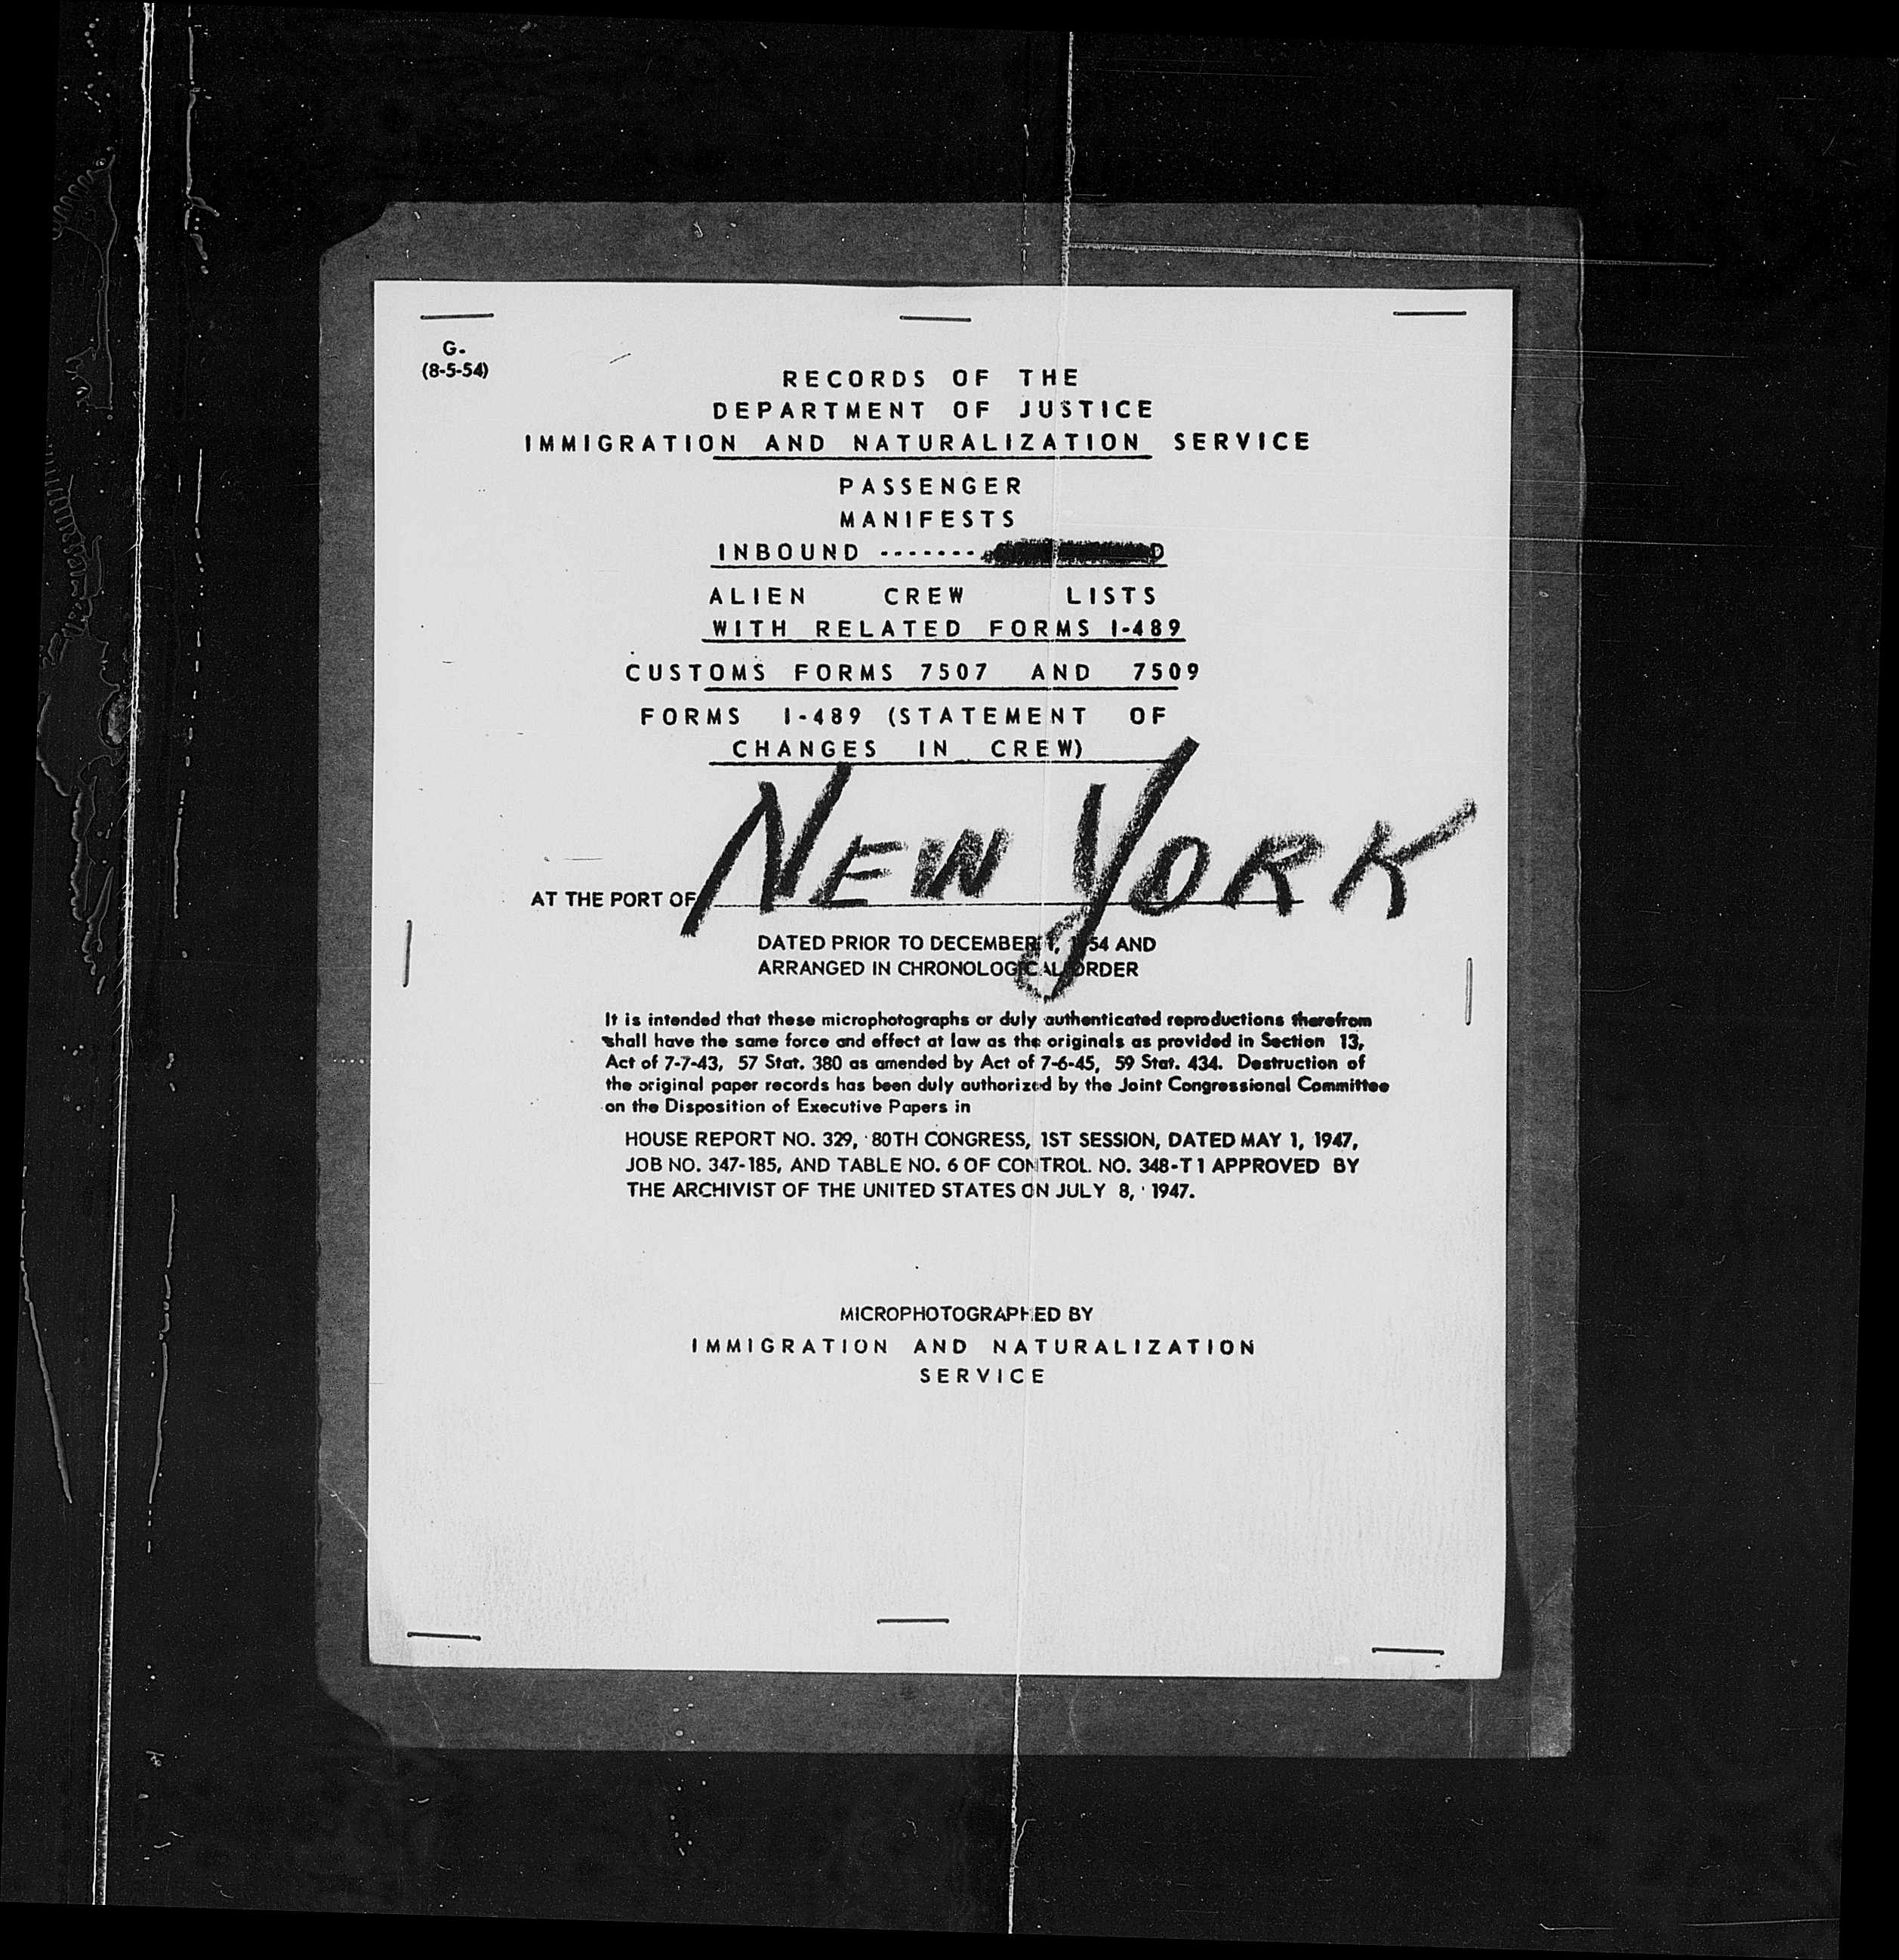 G.
(8-5-54)
RECORDS OF THE
DEPARTMENT OF JUSTICE
IMMIGRATION AND NATURALIZATION SERVICE
PASSENGER
MANIFESTS
INBOUND -------
ALIEN CREW LISTS
WITH RELATED FORMS I-489
CUSTOMS FORMS 7507 AND 7509
FORMS I-489 (STATEMENT OF
CHANGES IN CREW)
AT THE PORT OF NEW YORK
DATED PRIOR TO DECEMBER 1, 1954 AND
ARRANGED IN CHRONOLOGICAL ORDER
It is intended that these microphotographs or duly authenticated reproductions therefrom
shall have the same force and effect at law as the originals as provided in Section 13,
Act of 7-7-43, 57 Stat. 380 as amended by Act of 7-6-45, 59 Stat. 434. Destruction of
the original paper records has been duly authorized by the Joint Congressional Committee
on the Disposition of Executive Papers in
HOUSE REPORT NO. 329, 80TH CONGRESS, 1ST SESSION, DATED MAY 1, 1947,
JOB NO. 347-185, AND TABLE NO. 6 OF CONTROL NO. 348-T1 APPROVED BY
THE ARCHIVIST OF THE UNITED STATES ON JULY 8, 1947.
MICROPHOTOGRAPHED BY
IMMIGRATION AND NATURALIZATION
SERVICE